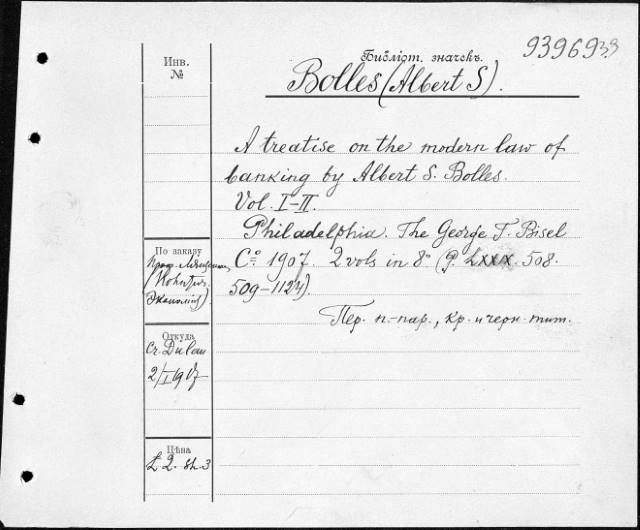 Инв.
№
Библіот. значекъ.
93969
Bolles (Albert S).
A treatise on the modern law of
banking by Albert S. Bolles.
Vol. I-II.
Philadelphia. The George T. Bisel
Cº 1907. 2 vols in 8º (p. LXXX. 508.
509-1124).
Пер. п.-пар., кр. и черн. тит.
По заказу
Проф.
Откуда
Dulau
2/I 1907
Цѣна
£ 2. sh. 3